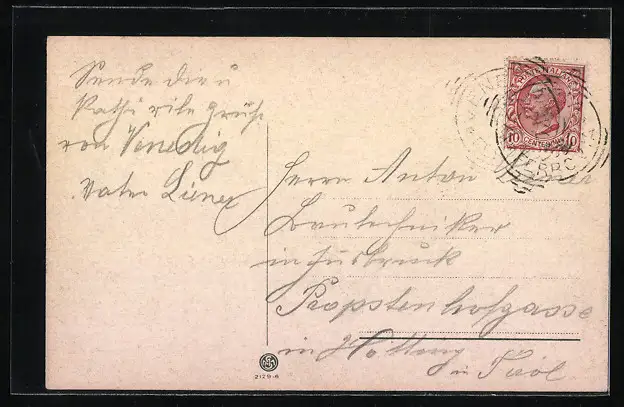 Sende dir u
Kathi viele Grüße
von Venedig
Vater Liener
Herrn Anton
Bautechniker
in Insbruck
Propstenhofgasse
in Hötting
in Tirol
10 CENTESIMI 10
2129-6